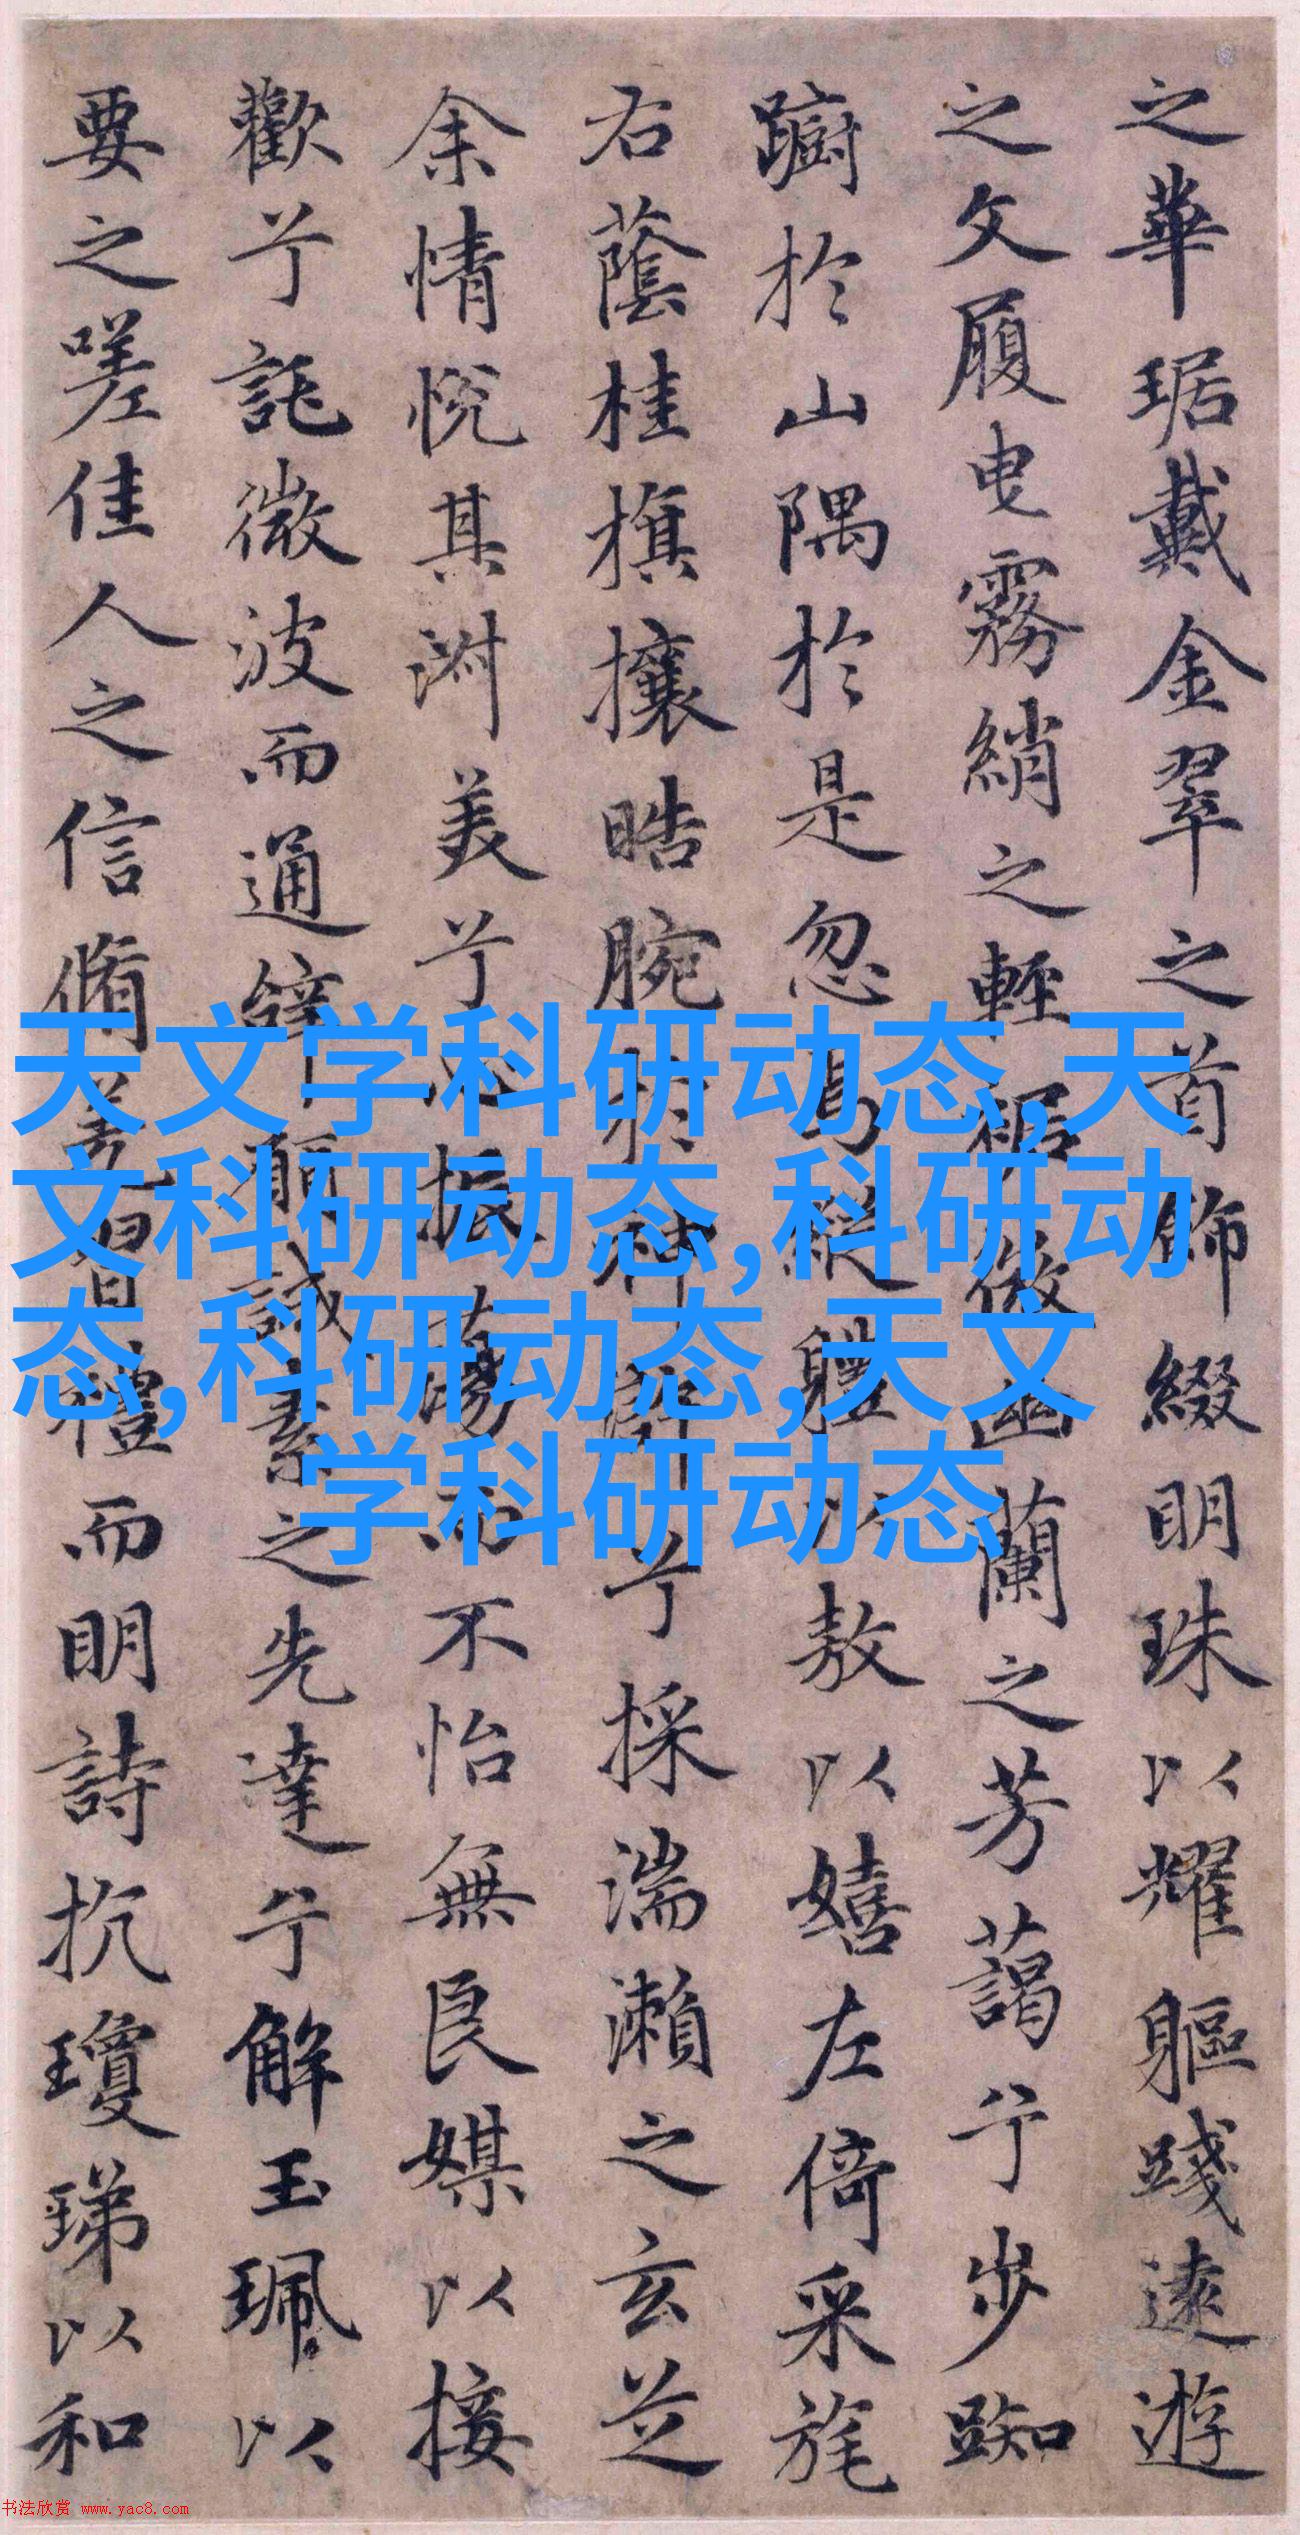 之華琚戴金翠之首飾綴明珠以耀軀踐遠遊
之文履曳霧綃之輕裾微幽蘭之芳藹兮步踟
躕於山隅於是忽焉縱軆以敖以嬉左倚采旄
右蔭桂旗攘晧腕於神滸兮採湍瀨之玄芝
余情悅其淑美兮心振蕩而不怡無良媒以接
歡兮託微波而通辭願誠素之先達兮解玉珮以
要之嗟佳人之信脩羌習禮而明詩抗瓊珶以和
天文学科研动态,天
文科研动态,科研动
态,科研动态,天文
学科研动态
书法欣赏 www.yac8.com